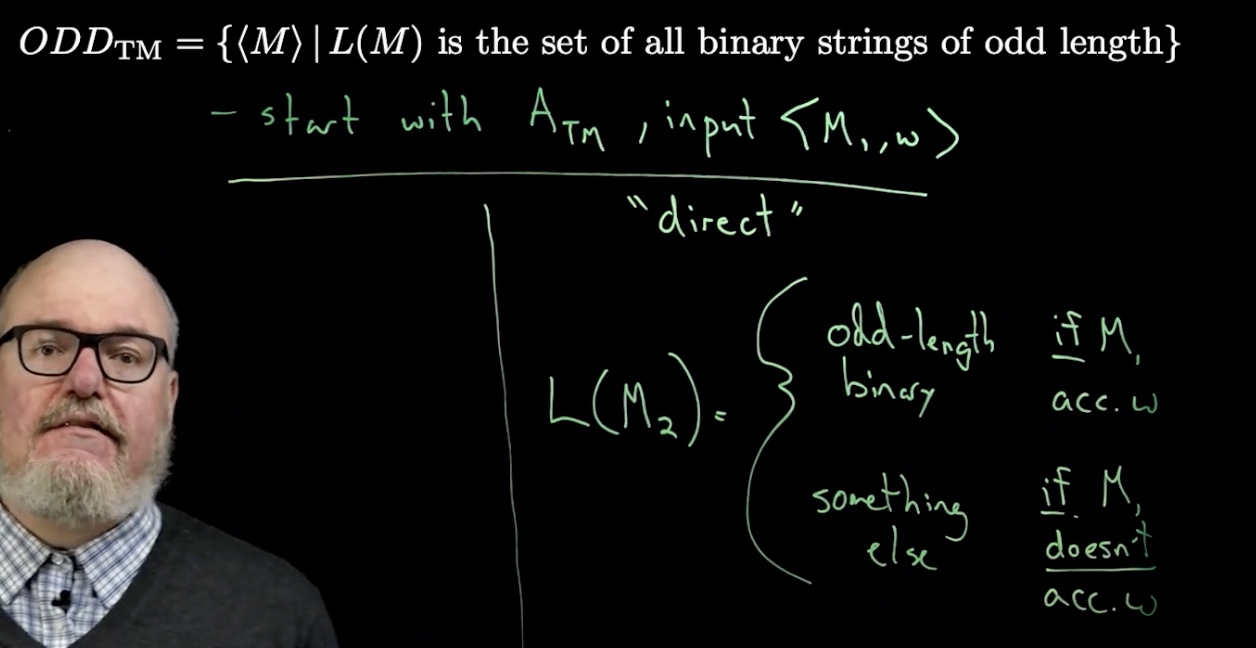 ODD_TM = {⟨M⟩ | L(M) is the set of all binary strings of odd length}
- start with A_TM, input <M₁, w>
"direct"
L(M₂) = { odd-length binary if M₁ acc. w
something else if M₁ doesn't acc. w